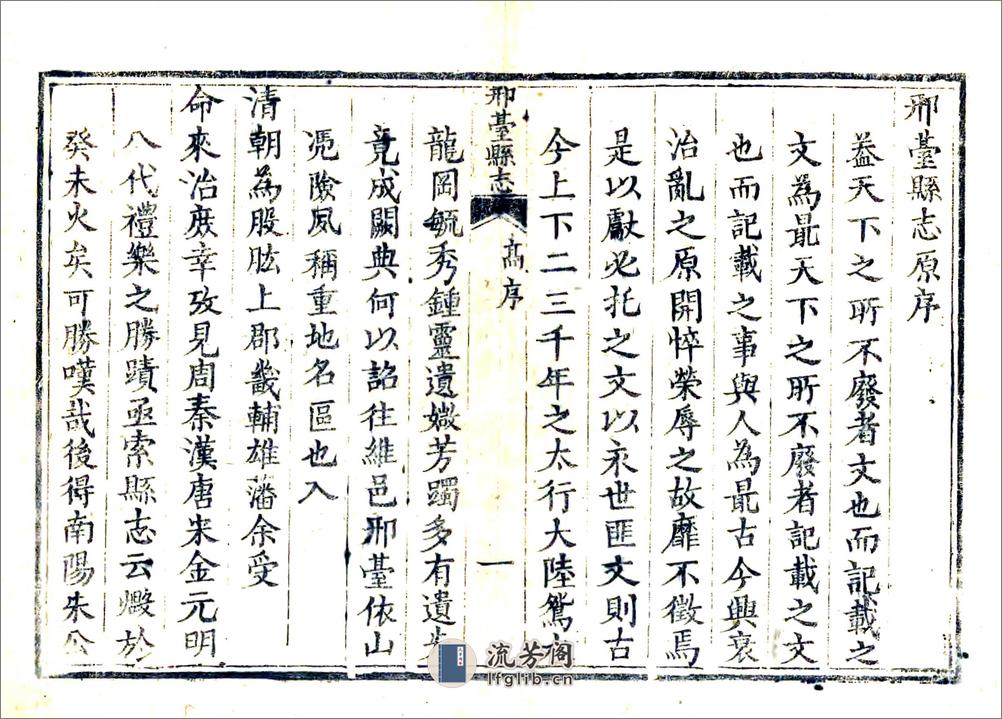 邢臺縣志原序
葢天下之所不廢者文也而記載之
文為最天下之所不廢者記載之文
也而記載之事與人為最古今興衰
治亂之原開悖榮辱之故靡不徵焉
是以獻必托之文以永世匪文則古
今上下二三千年之太行大陸鴛水
邢臺縣志
高序
一
龍岡毓秀鍾靈遺媺芳躅多有遺失
竟成闕典何以詔徃維邑邢臺依山
凴險夙稱重地名區也入
清朝為股肱上郡畿輔雄藩余受
命來治庻幸攷見周秦漢唐宋金元明
八代禮樂之勝蹟亟索縣志云燬於
癸未火矣可勝嘆哉後得南陽朱公
流芳阁
lfglib.cn